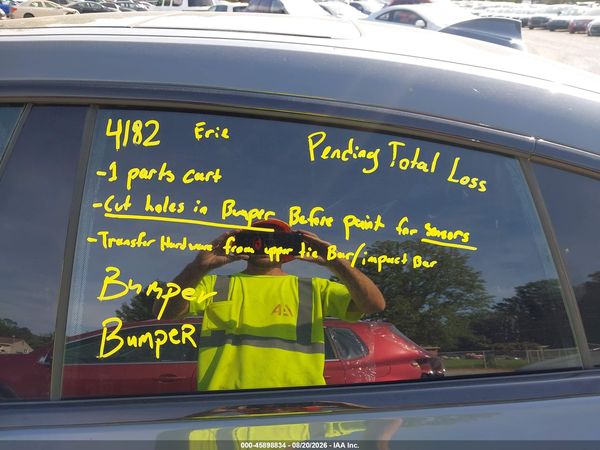 4182 Erie Pending Total Loss
-1 parts cart
-Cut holes in Bumper Before paint for Sensors
-Transfer Hardware from upper tie Bar/impact Bar
Bumper
Bumper
AA
000-45898834 - 08/20/2026 - IAA Inc.